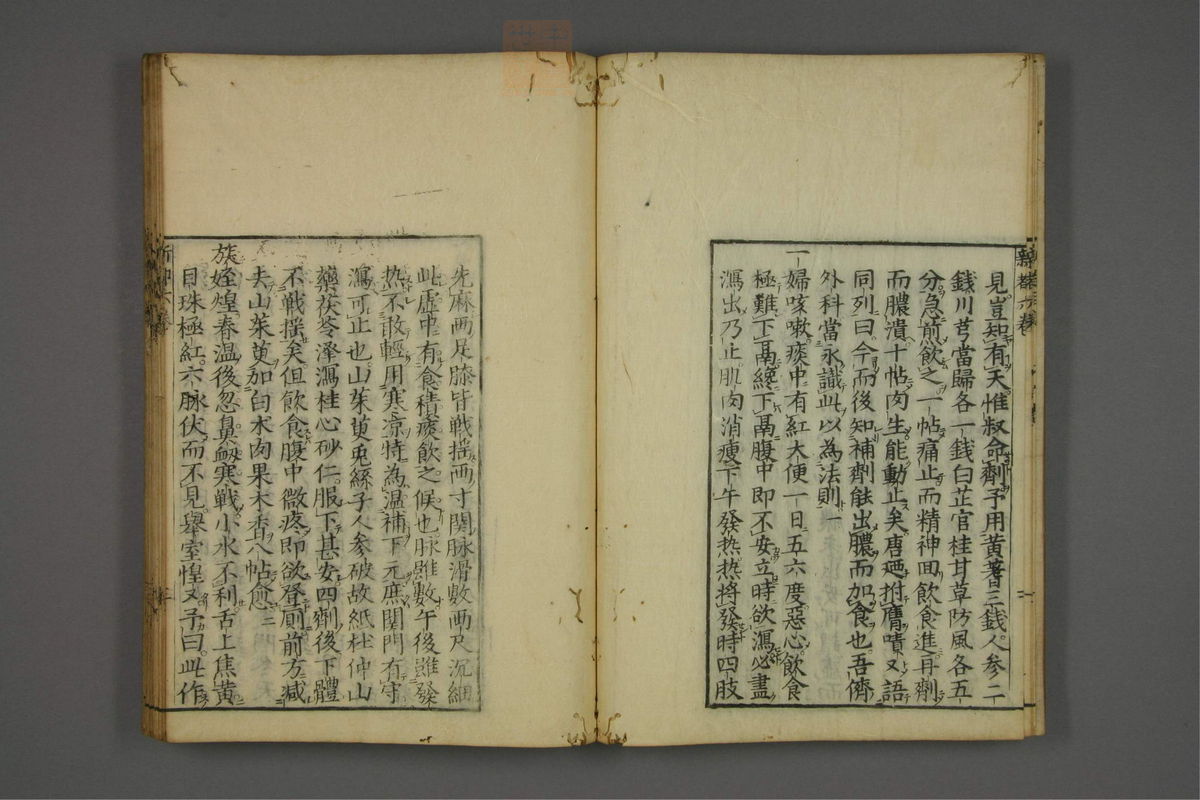 見豈知有天惟叔命劑予用黃蓍三錢人參二
錢川芎當歸各一錢白芷官桂甘草防風各五
分急煎飲之一帖痛止而精神回飲食進再劑
而膿潰十帖肉生能動止矣唐廼拊膺嘖又語
同列曰今而後知補劑能出膿而加食也吾儕
外科當永識此以為法則
一婦咳嗽痰中有紅大便一日五六度惡心飲食
極難下鬲纔下鬲腹中即不安立時欲瀉必盡
瀉出乃止肌肉消瘦下午發热热將發時四肢
先麻兩足膝皆戰揺兩寸関脉滑數兩尺沉細
此虛中有食積痰飲之候也脉雖數午後雖發
热不敢輕用寒凉特為温補下元庶関門有守
瀉可止也山茱萸兎絲子人參破故紙杜仲山
藥茯苓澤瀉桂心砂仁服下甚安四劑後下體
不戰揺矣但飲食腹中微疼即欲登厠前方减
去山茱萸加白术肉果木香八帖愈
族姪煌春温後忽鼻衂寒戰小水不利舌上焦黄
目珠極紅六脉伏而不見舉室惶又予曰此作